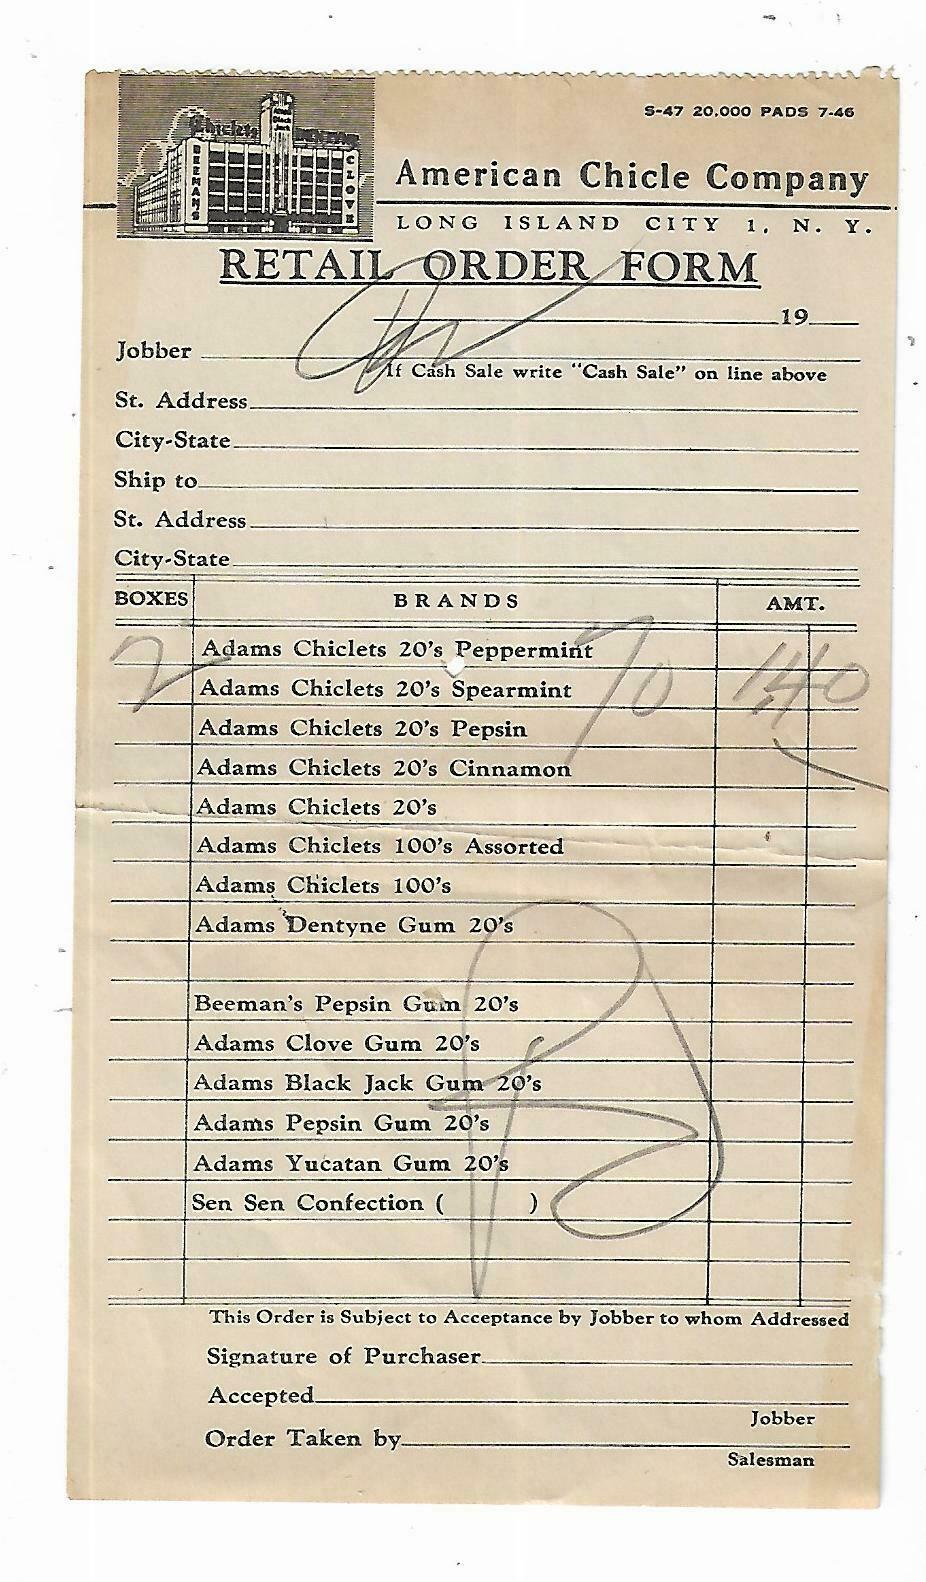 S-47 20,000 PADS 7-46
Chiclets
DENTYNE
Black Jack
BEEMANS
CLOVE
American Chicle Company
LONG ISLAND CITY 1, N. Y.
RETAIL ORDER FORM
19
Jobber
If Cash Sale write "Cash Sale" on line above
St. Address
City-State
Ship to
St. Address
City-State
BOXES BRANDS AMT.
2 Adams Chiclets 20's Peppermint 70 1 40
Adams Chiclets 20's Spearmint
Adams Chiclets 20's Pepsin
Adams Chiclets 20's Cinnamon
Adams Chiclets 20's
Adams Chiclets 100's Assorted
Adams Chiclets 100's
Adams Dentyne Gum 20's
Beeman's Pepsin Gum 20's
Adams Clove Gum 20's
Adams Black Jack Gum 20's
Adams Pepsin Gum 20's
Adams Yucatan Gum 20's
Sen Sen Confection ( )
This Order is Subject to Acceptance by Jobber to whom Addressed
Signature of Purchaser
Accepted
Jobber
Order Taken by
Salesman